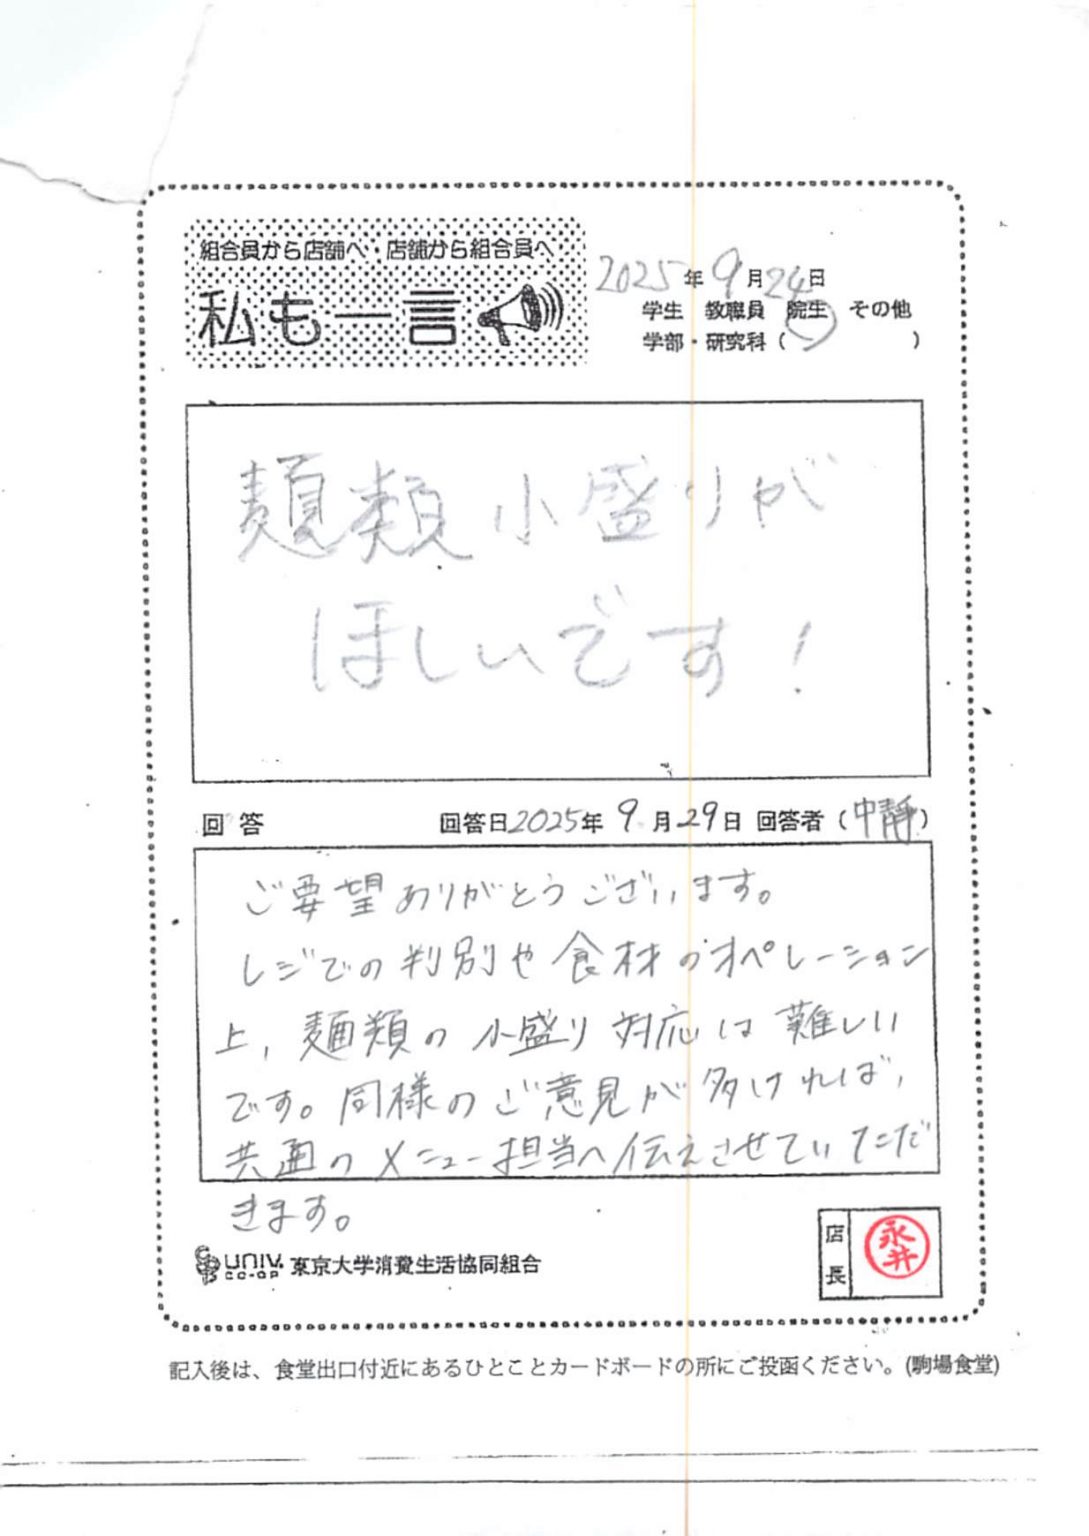 組合員から店舗へ・店舗から組合員へ
私も一言
2025年9月24日
学生 教職員 院生 その他
学部・研究科 ( )
麺類小盛りが
ほしいです!
回答 回答日2025年9月29日 回答者 (中静)
ご要望ありがとうございます。
レジでの判別や食材のオペレーション
上、麺類の小盛り対応は難しい
です。同様のご意見が多ければ、
共通のメニュー担当へ伝えさせていただ
きます。
店長 永井
UNIV. CO-OP 東京大学消費生活協同組合
記入後は、食堂出口付近にあるひとことカードボードの所にご投函ください。(駒場食堂)